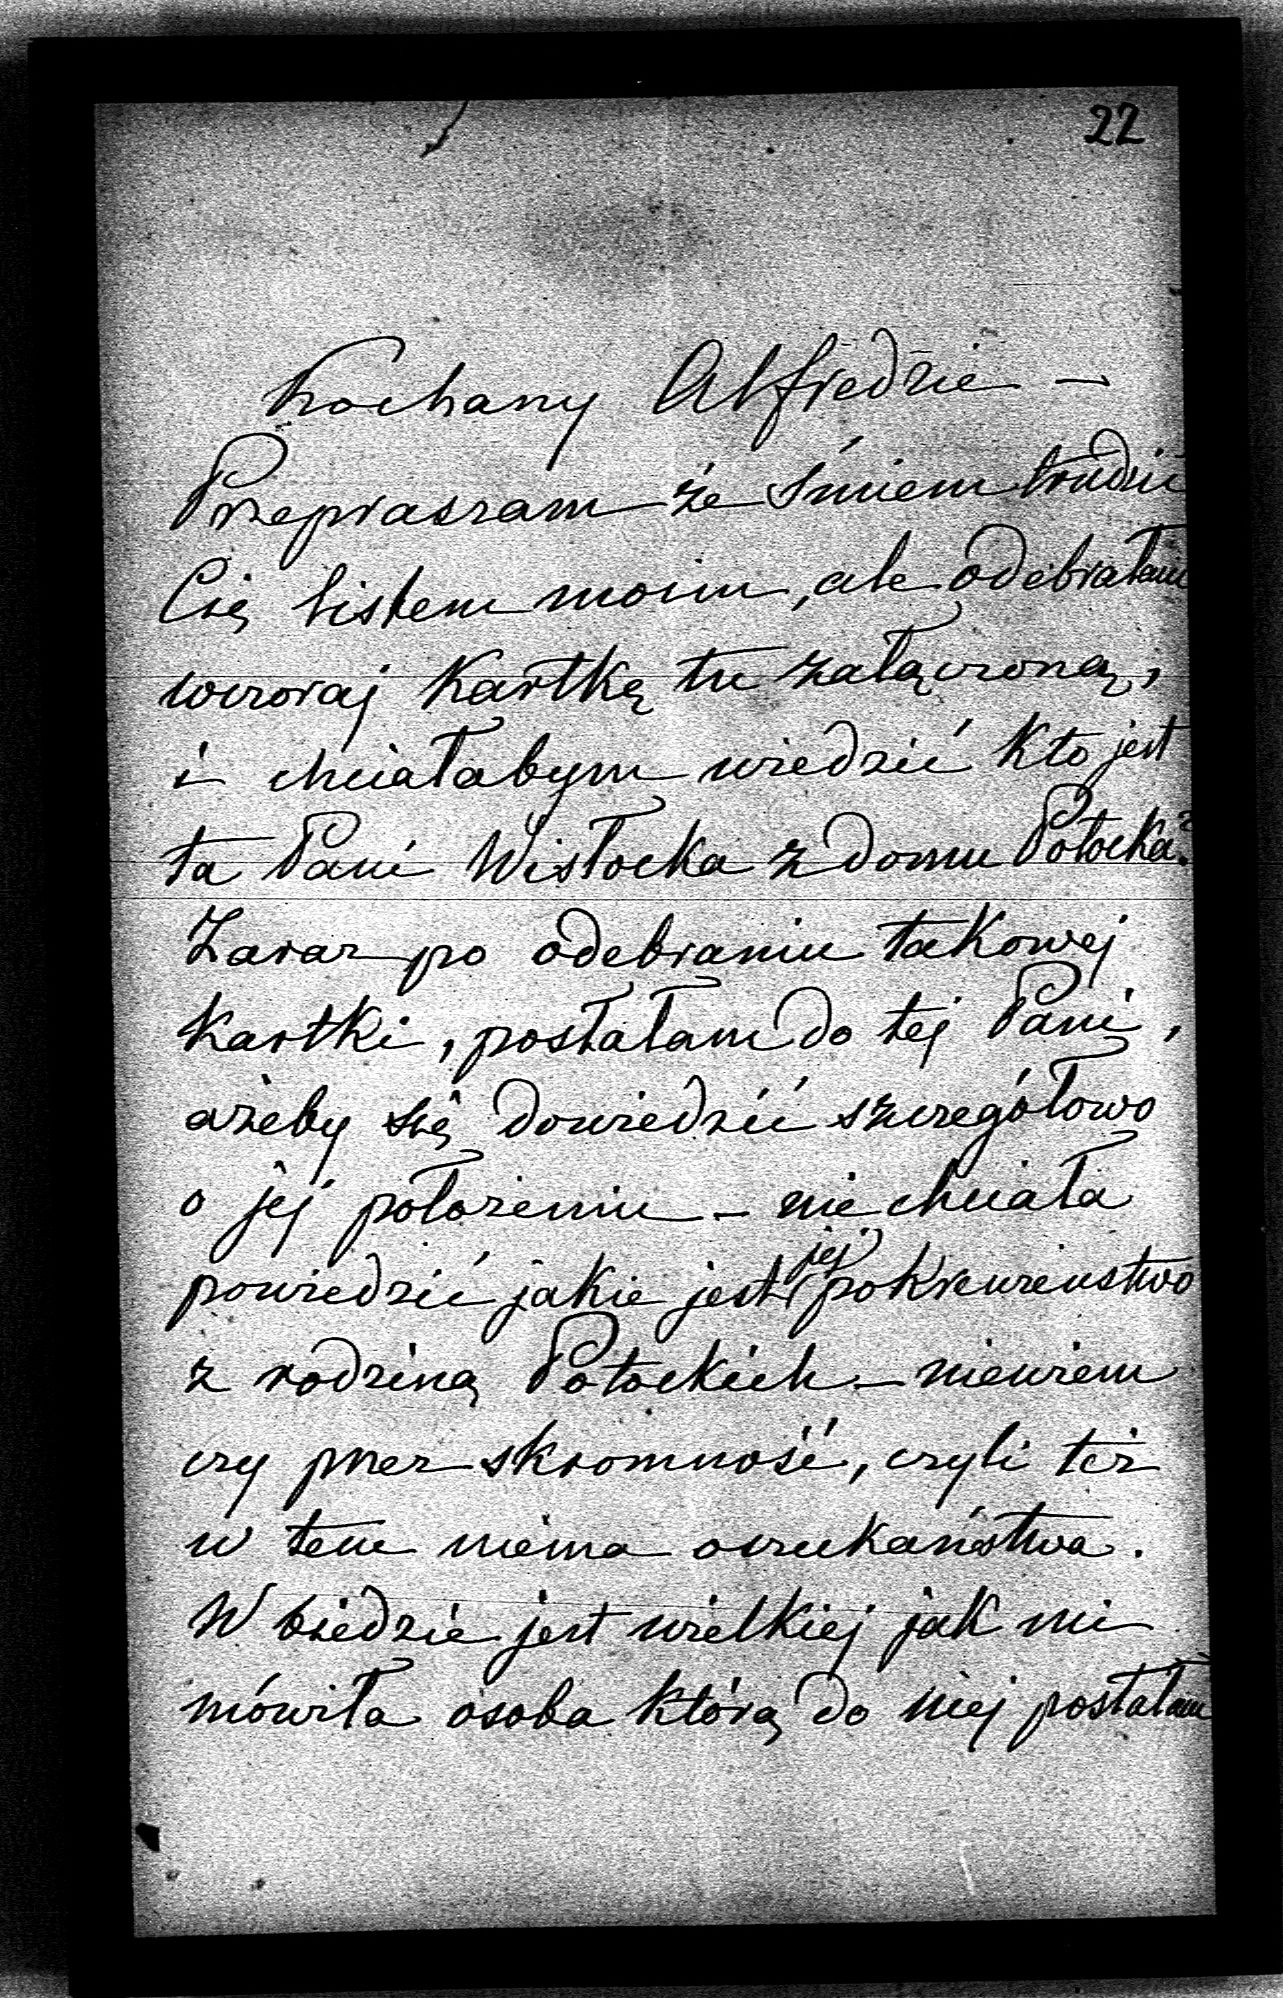 22
Kochany Alfredzie —
Przepraszam że śmiem trudzić
Cię listem moim, ale odebrałam
wczoraj kartkę tu załączoną,
i chciałabym wiedzić kto jest
ta Pani Wisłocka z domu Potocka?
Zaraz po odebraniu takowej
kartki, posłałam do tej Pani,
ażeby się dowiedzić szczegółowo
o jej położeniu — nie chciała
powiedzić jakie jest jej pokrewieństwo
z rodziną Potockich — niewiem
czy przez skromność, czyli też
w tem niema oszukaństwa.
W biedzie jest wielkiej jak mi
mówiła osoba którą do niej posłałam